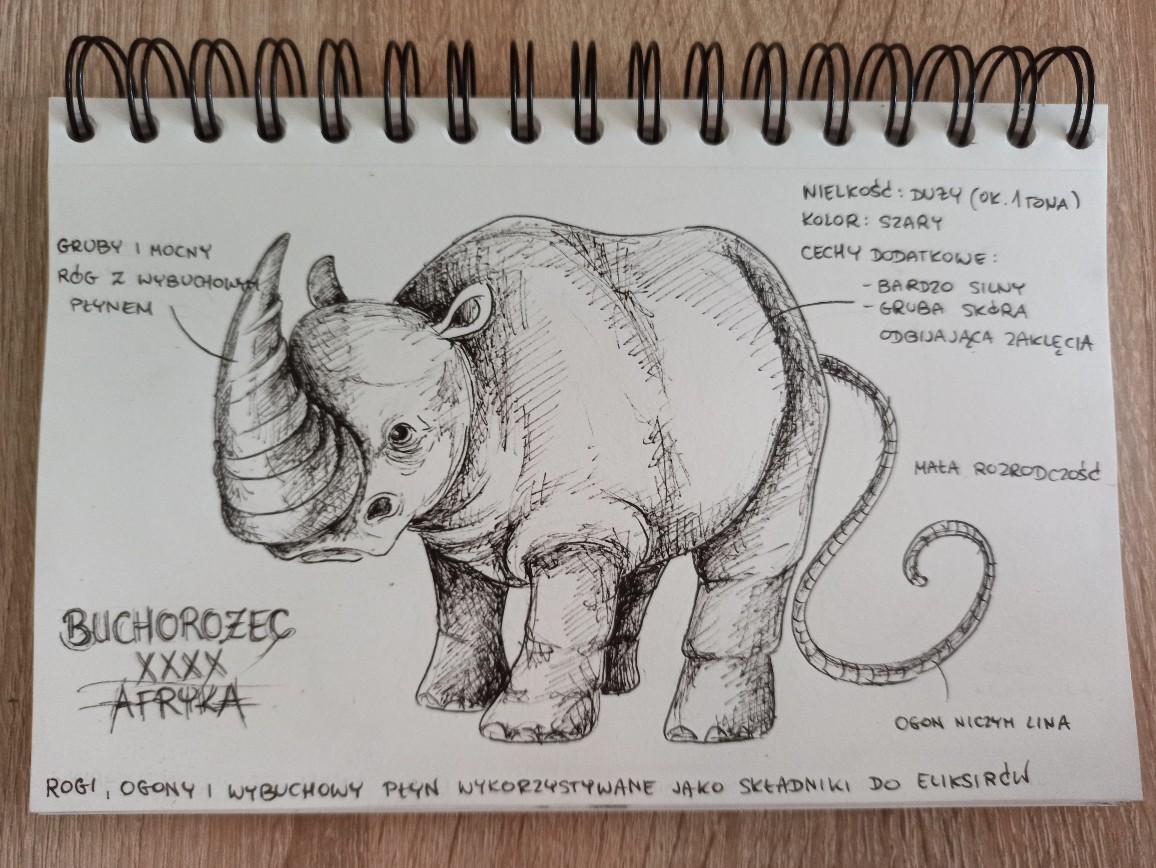 NIELKOŚĆ: DUŻY (OK. 1 TONA)
KOLOR: SZARY
CECHY DODATKOWE:
- BARDZO SILNY
- GRUBA SKÓRA
ODBIJAJĄCA ZAKLĘCIA
GRUBY I MOCNY
RÓG Z WYBUCHOWYM
PŁYNEM
MAŁA ROZRODCZOŚĆ
BUCHOROŻEC
XXXX
AFRYKA
OGON NICZYM LINA
ROGI, OGONY I WYBUCHOWY PŁYN WYKORZYSTYWANE JAKO SKŁADNIKI DO ELIKSIRÓW